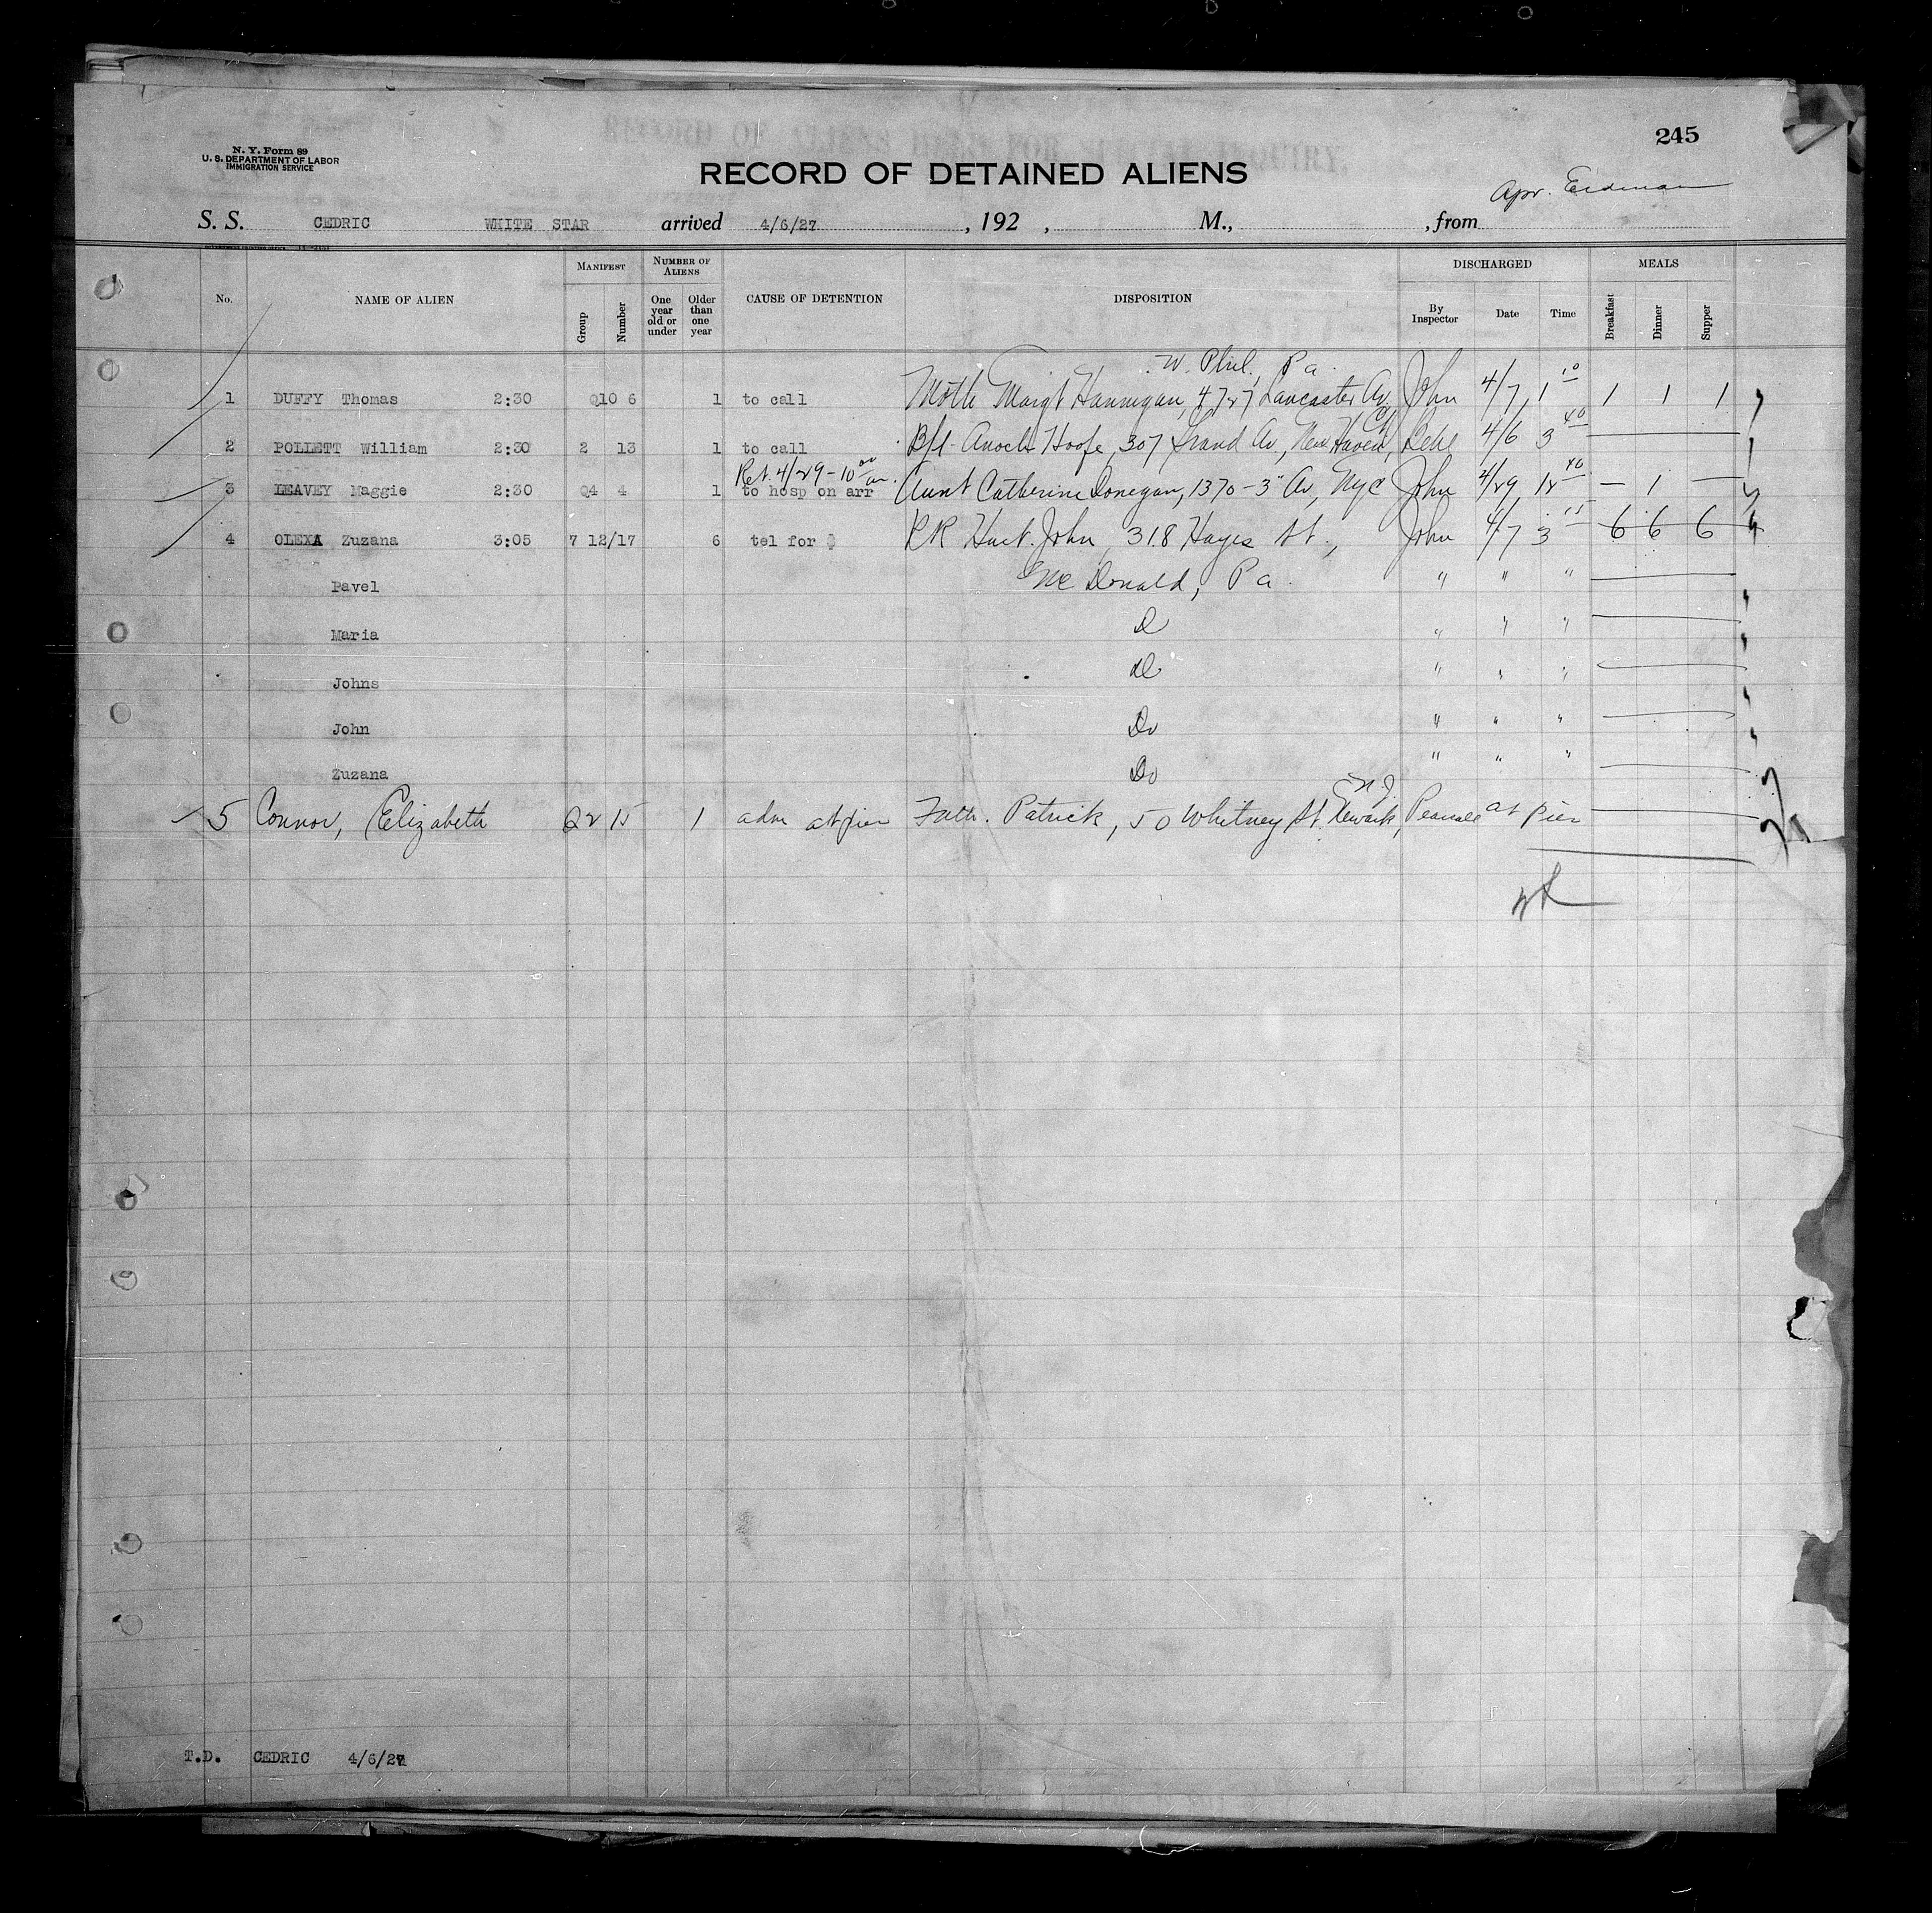 245
N. Y. Form 89
U. S. DEPARTMENT OF LABOR
IMMIGRATION SERVICE
RECORD OF DETAINED ALIENS
Apr. Erdman
S. S. CEDRIC WHITE STAR arrived 4/6/27, 192 , M., , from
No. NAME OF ALIEN MANIFEST NUMBER OF ALIENS CAUSE OF DETENTION DISPOSITION DISCHARGED MEALS
Group Number One year old or under Older than one year By Inspector Date Time Breakfast Dinner Supper
W. Phil., Pa.
1 DUFFY Thomas 2:30 Q10 6 1 to call Moth Margt Hannegan, 4727 Lancaster Av John 4/7 1 10 1 1 1
2 POLLETT William 2:30 2 13 1 to call B/l Anoch Hoofe, 307 Grand Av., New Haven, Ct 4/6 3 40
Ret. 4/29 - 10 00 am.
3 LEAVEY Maggie 2:30 Q4 4 1 to hosp on arr Aunt Catherine Donegan, 1370 - 3" Av, NYC John 4/29 12 40 — 1 —
4 OLEXA Zuzana 3:05 7 12/17 6 tel for RR Husb. John, 318 Hayes St., John 4/7 3 15 6 6 6
Pavel McDonald, Pa. " " "
Maria D " " "
Johns D " " "
John Do " " "
Zuzana Do " " "
5 Connor, Elizabeth Q2 15 1 adm at pier Fath. Patrick, 50 Whitney St. Newark, N.J. at pier
T.D. CEDRIC 4/6/27